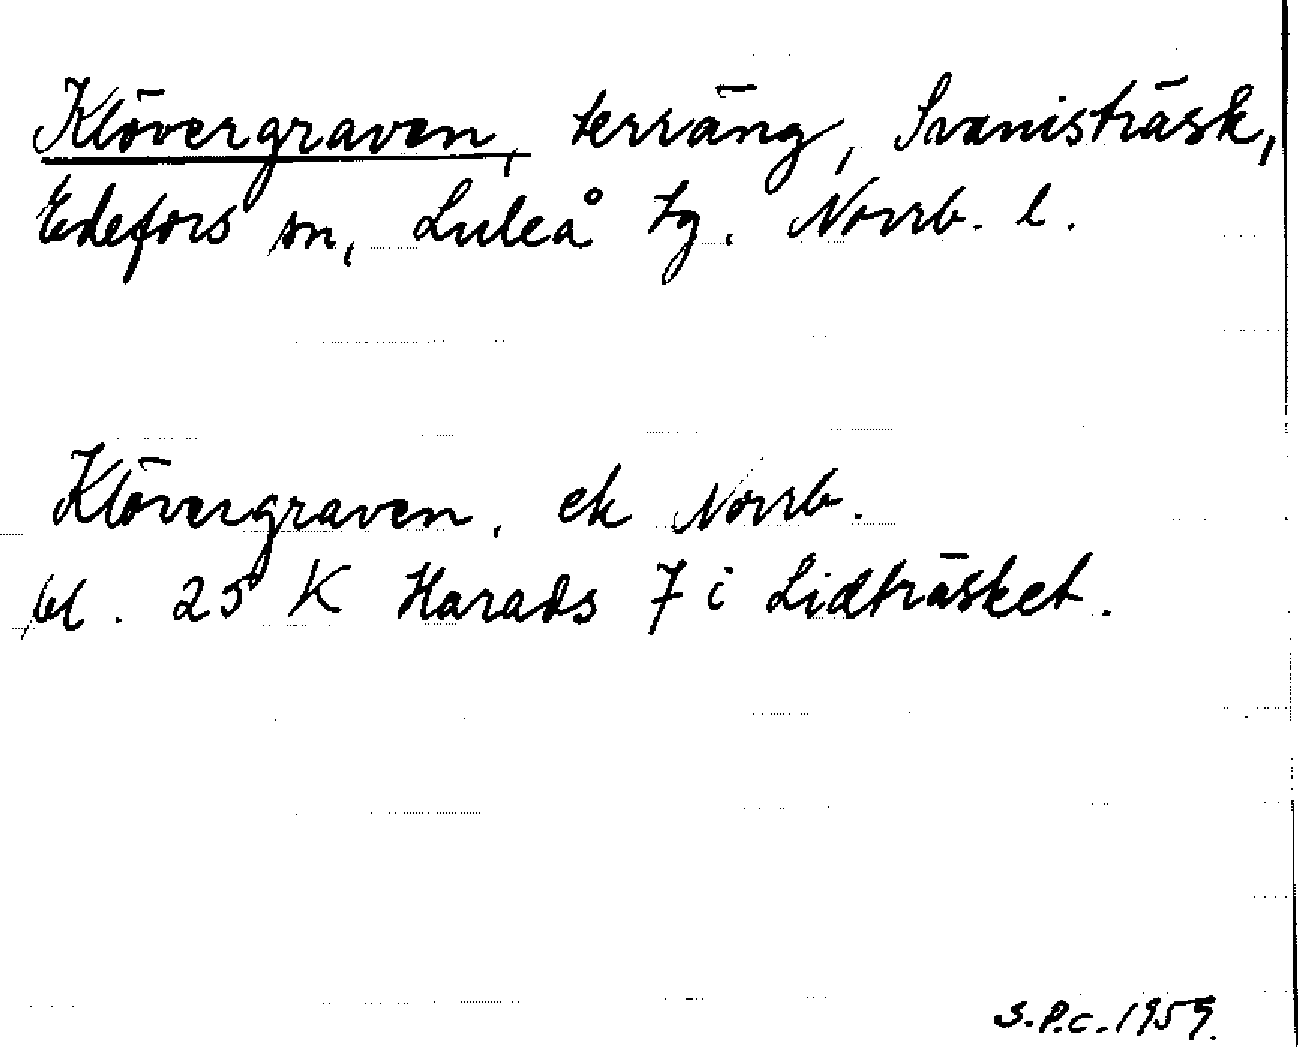 Klövergraven, terräng, Svanisträsk,
Edefors sn, Luleå tg. Norrb. l.
Klövergraven, ek Norrb.
bl. 25 K Harads 7 i Lidträsket.
S.P.C. 1959.